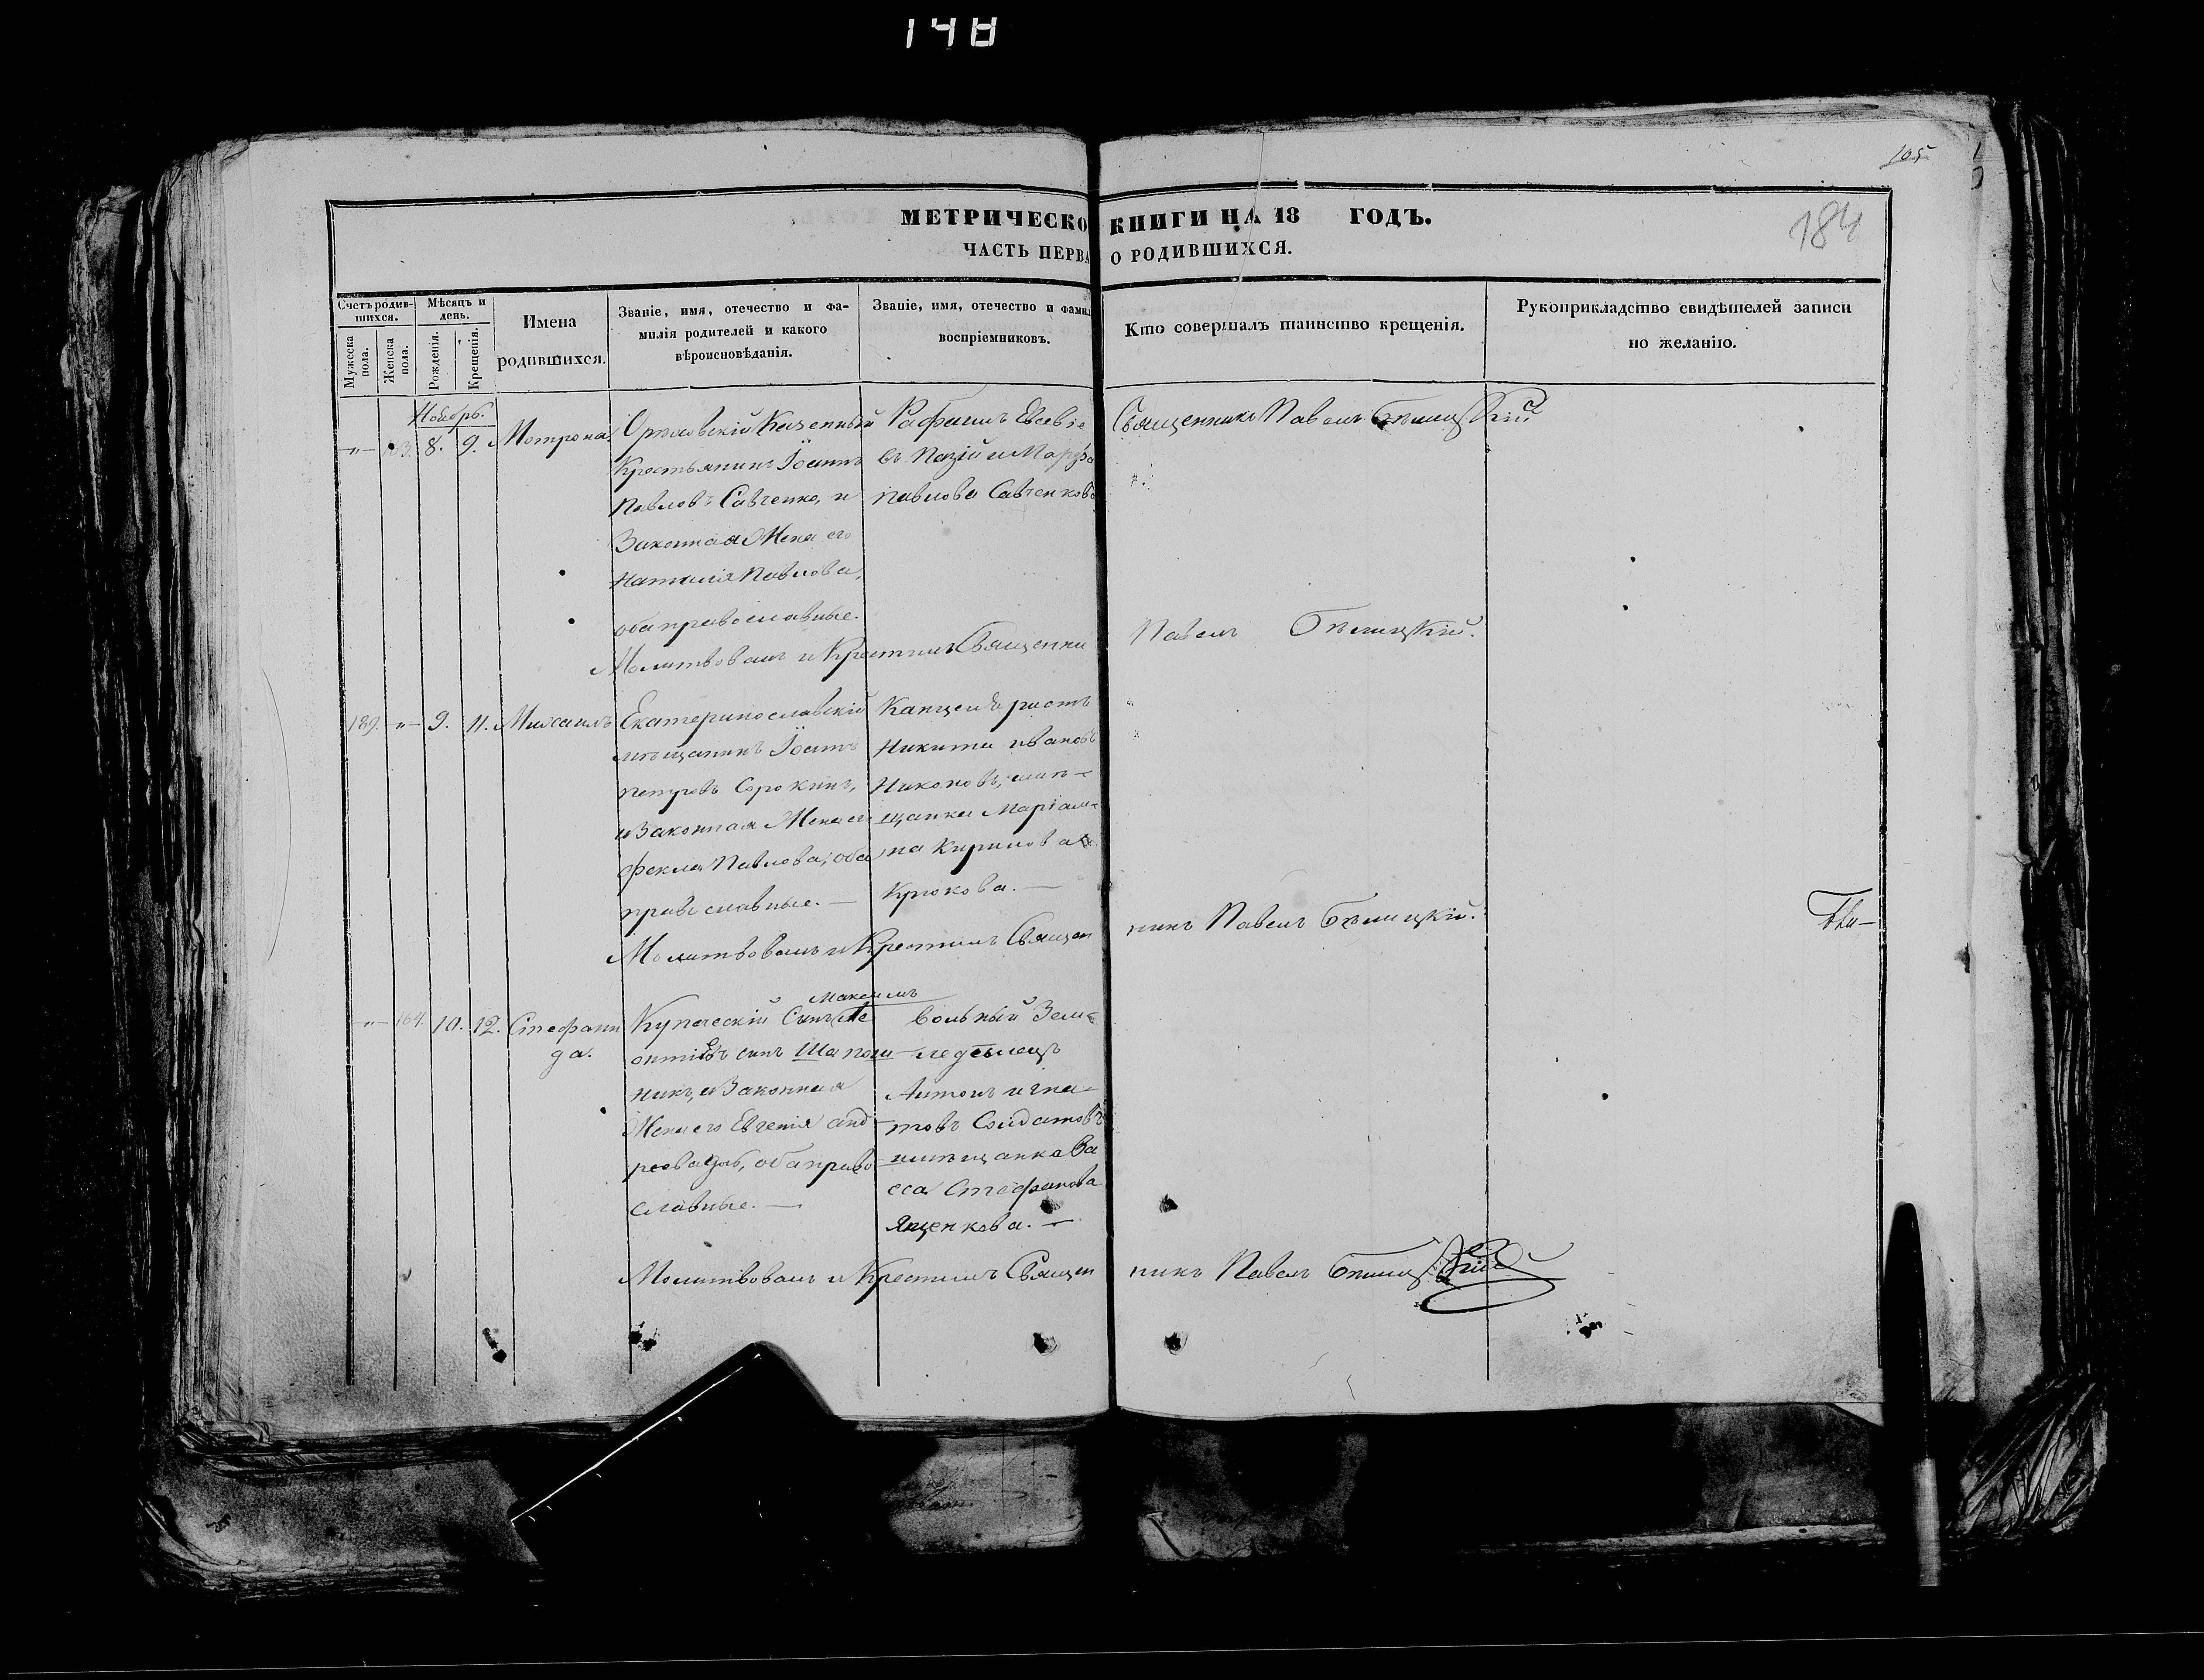 148
105
184
МЕТРИЧЕСКО КНИГИ НА 18 ГОДЪ.
ЧАСТЬ ПЕРВА О РОДИВШИХСЯ.
Счетъ родив-
шихся.
Мужеска пола.
Женска пола.
Мѣсяцъ и
день.
Рожденія.
Крещенія.
Имена
родившихся.
Званіе, имя, отечество и фа-
милія родителей и какого
вѣроисповѣданія.
Званіе, имя, отечество и фамил
воспріемниковъ.
Кто совершалъ таинство крещенія.
Рукоприкладство свидѣтелей записи
по желанію.
Ноябрь.
8. 9. Мотрона
Орѣловскій Казенный
Крестьянинъ Іоаннъ
Павловъ Савченко, и
Законная Жена его
Наталія Павлова,
оба православные.
Рафаилъ Евсевіе
въ и Марфа
Павлова Савченкова
Священникъ Павелъ Бѣлицкій
Молитвовалъ и Крестилъ Священни Павелъ Бѣлицкій.
189. -"- 9. 11. Михаилъ
Екатеринославскій
мѣщанинъ Іоаннъ
Петровъ Сорокинъ,
и Законная Жена его
Фекла Павлова, оба
православные. —
Канцеляристъ
Никита Ивановъ
Никоновъ, и мѣ-
щанка Маріам-
на Кирилова
Крюкова. —
Молитвовалъ и Крестилъ Священ никъ Павелъ Бѣлицкій.
-"- 164. 10. 12. Стефани
да.
Максимъ
Купеческій Сынъ Ле
онтіевъ сынъ Шапош
никъ, и Законная
Жена его Евгенія Анд
реева, оба право
славные. —
вольный Зем-
ледѣлецъ
Антонъ Игна-
товъ Солдатовъ
и мѣщанка Ва
сса Стефанова
Яценкова. —
Молитвовалъ и Крестилъ Священ никъ Павелъ Бѣлицкій